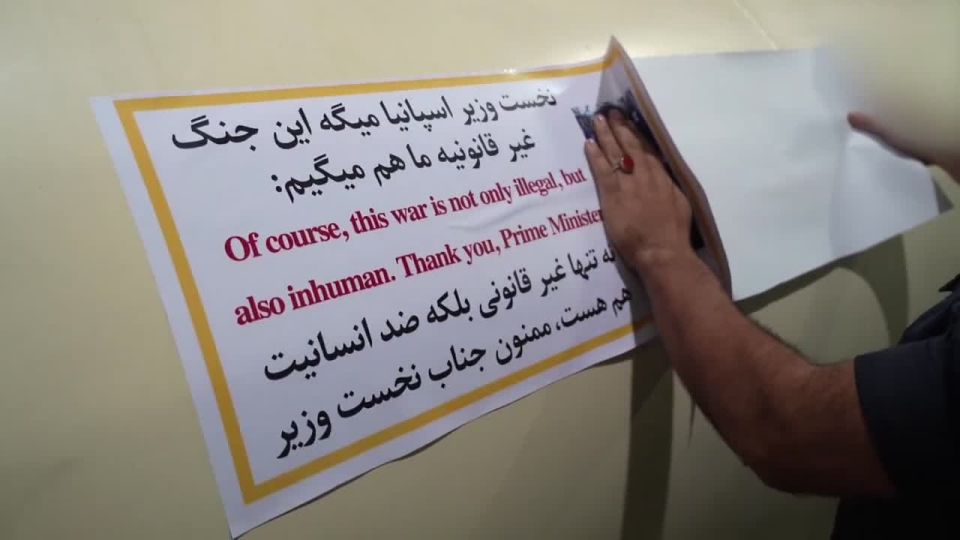 نخست وزیر اسپانیا میگه این جنگ
غیر قانونیه ما هم میگیم:
Of course, this war is not only illegal, but
also inhuman. Thank you, Prime Minister
نه تنها غیر قانونی بلکه ضد انسانیت
هم هست، ممنون جناب نخست وزیر